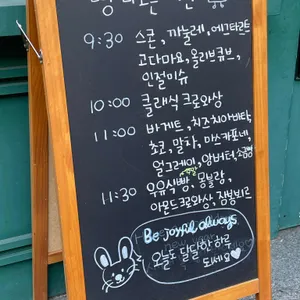 9:30 스콘, 까눌레, 에그타르트
고다마요, 올리브큐브,
인절미슈
10:00 클래식 크로와상
11:00 바게트, 치즈치아바타,
초코, 말차, 마스카포네,
얼그레이, 앙버터, 소금빵
11:30 우유식빵, 몽블랑,
아몬드크로와상, 잠봉뵈르
Be joyful always
오늘도 달달한 하루
되세요♡